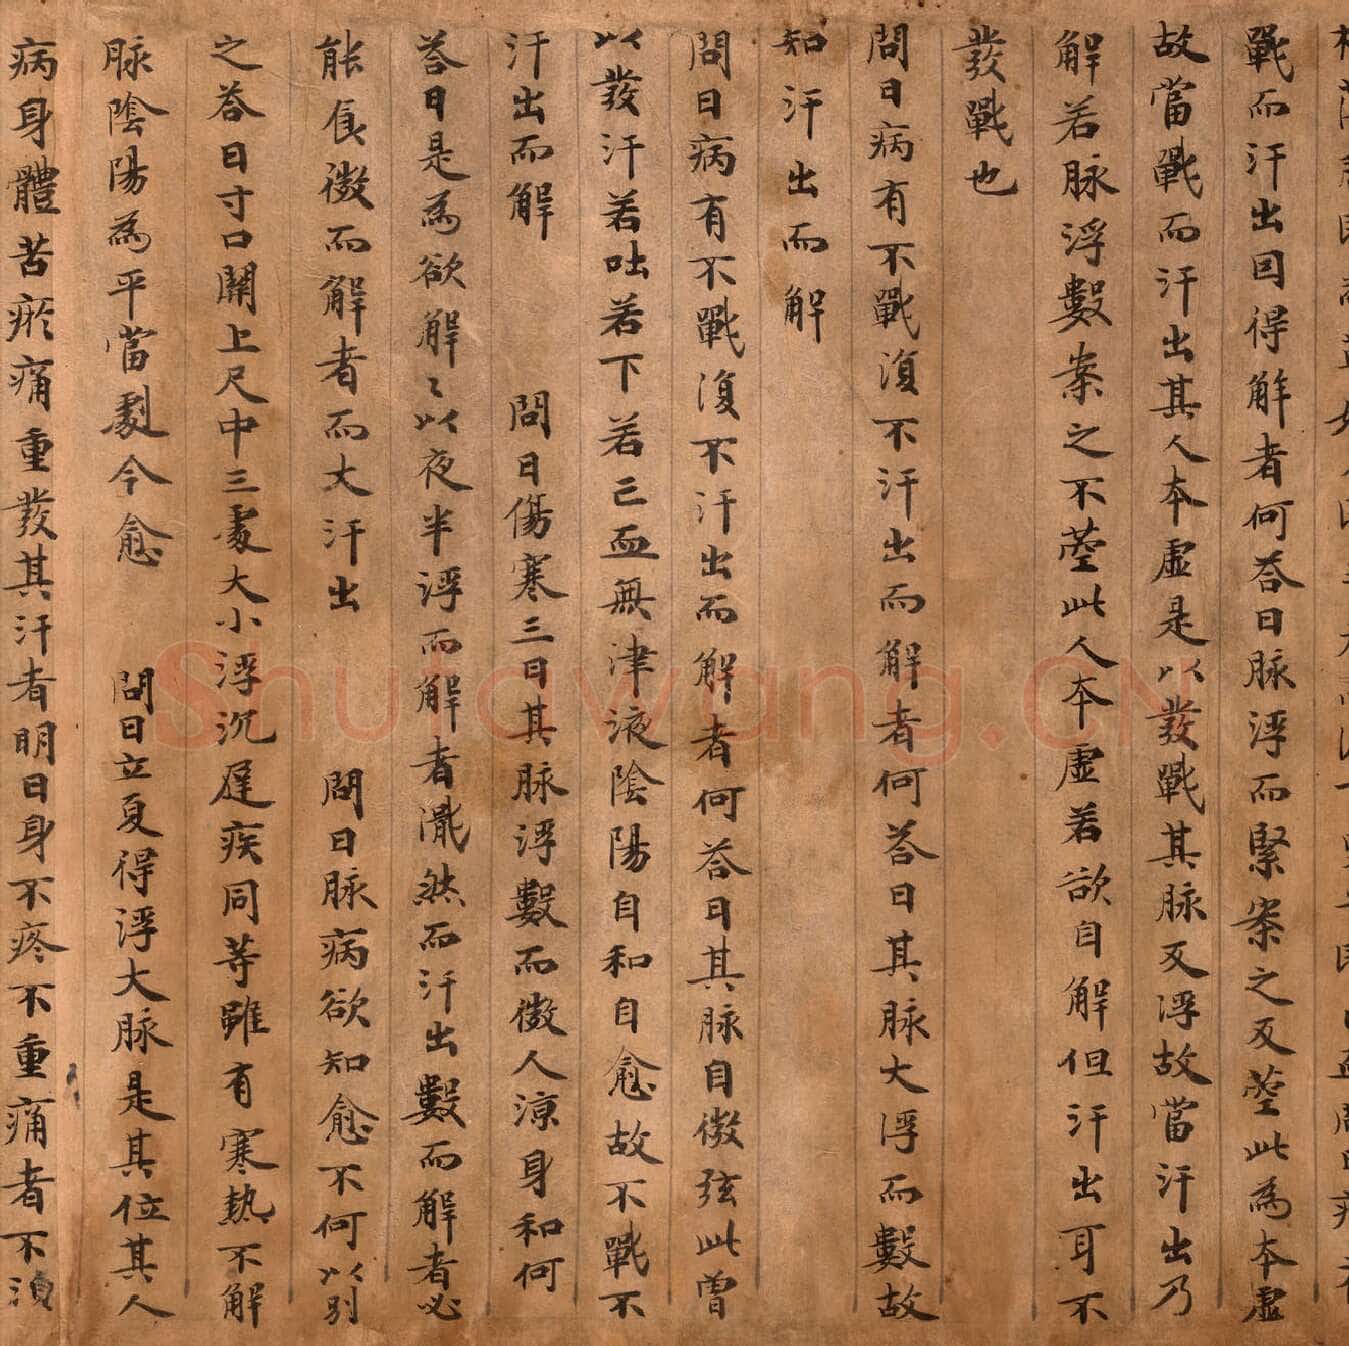 戰而汗出因得解者何荅曰脉浮而緊案之反莖此為本虛
故當戰而汗出其人本虛是以發戰其脉反浮故當汗出乃
解若脉浮數案之不莖此人本虛若欲自解但汗出耳不
發戰也
問曰病有不戰復不汗出而解者何荅曰其脉大浮而數故
知汗出而解
問曰病有不戰復不汗出而解者何荅曰其脉自微弦此曾
以發汗若吐若下若亡血無津液陰陽自和自愈故不戰不
汗出而解 問曰傷寒三日其脉浮數而微人凉身和何
荅曰是為欲解々以夜半浮而解者濈然而汗出數而解者必
能食微而解者而大汗出 問曰脉病欲知愈不何以別
之荅曰寸口關上尺中三處大小浮沉遲疾同等雖有寒熱不解
脉陰陽為平當劇今愈 問曰立夏得浮大脉是其位其人
病身體苦瘀痛重發其汗者明日身不疼不重痛者不須
Shufawang.CN